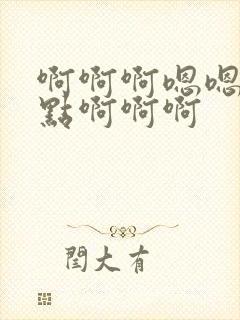 啊啊啊嗯嗯
點啊啊啊
閆大有